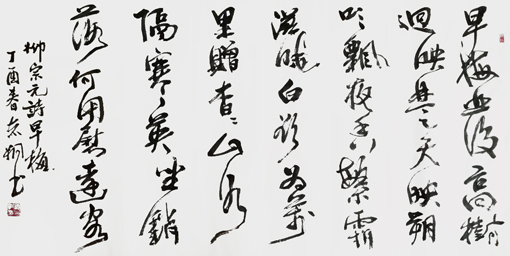 早梅發高樹
迥映楚天碧朔
吹飄夜香繁霜
滋曉白欲為萬
里贈杳々山水
隔寒英坐銷
落何用慰遠客
柳宗元詩早梅
丁酉春书